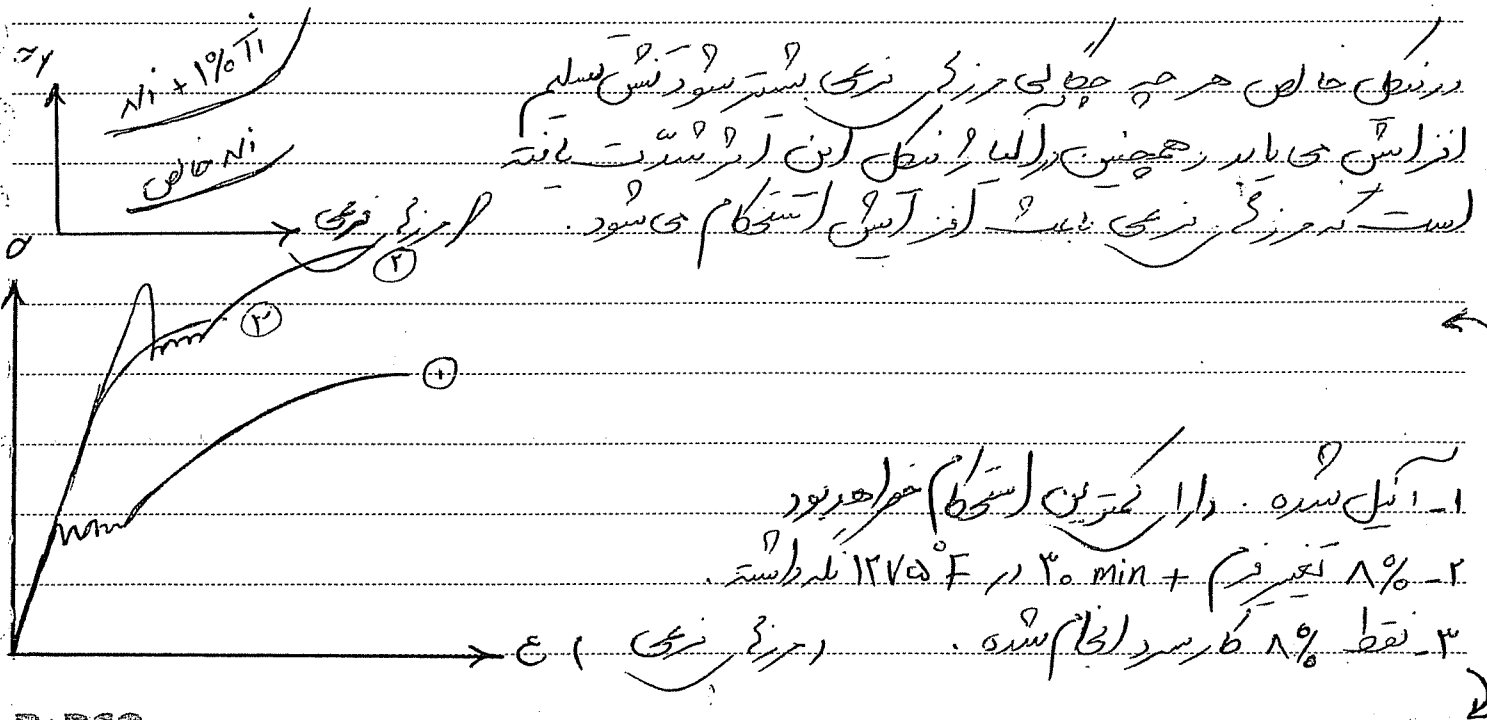 در نیکل خالص هر چه چگالی مرزهای فرعی بیشتر شود تنش تسلیم
افزایش می یابد. همچنین در آلیاژ نیکل این اثر شدّت یافته
است که مرزهای فرعی باعث افزایش استحکام می شود.
σy
Ni + 1% Ti
Ni خالص
مرزهای فرعی
σ
۲
۳
۱
۱- آنیل شده. دارای کمترین استحکام خواهد بود
۲- ۸% تغییر فرم + ۳۰ min در ۱۲۷۵°F نگه داشته.
۳- فقط ۸% کار سرد انجام شده.
(مرزهای فرعی) ε